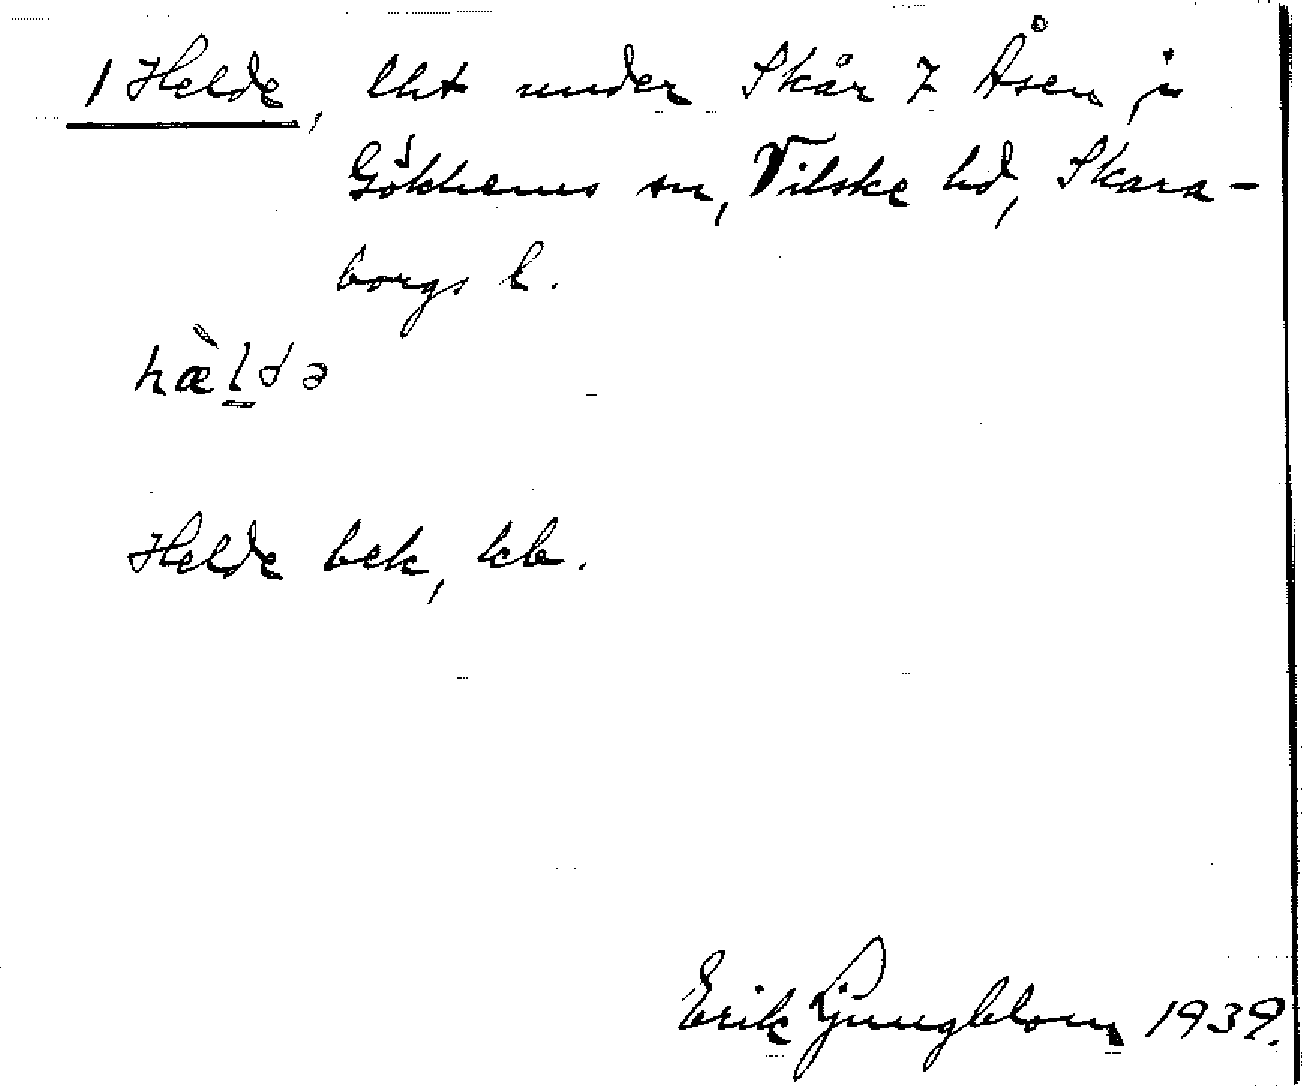 1 Helde, lht under Skår 7 Åsen i
Gökhems sn, Vilske hd, Skara-
borgs l.
hæ̀l̠də
Helde bek, kb.
Erik Ljungblom 1939.